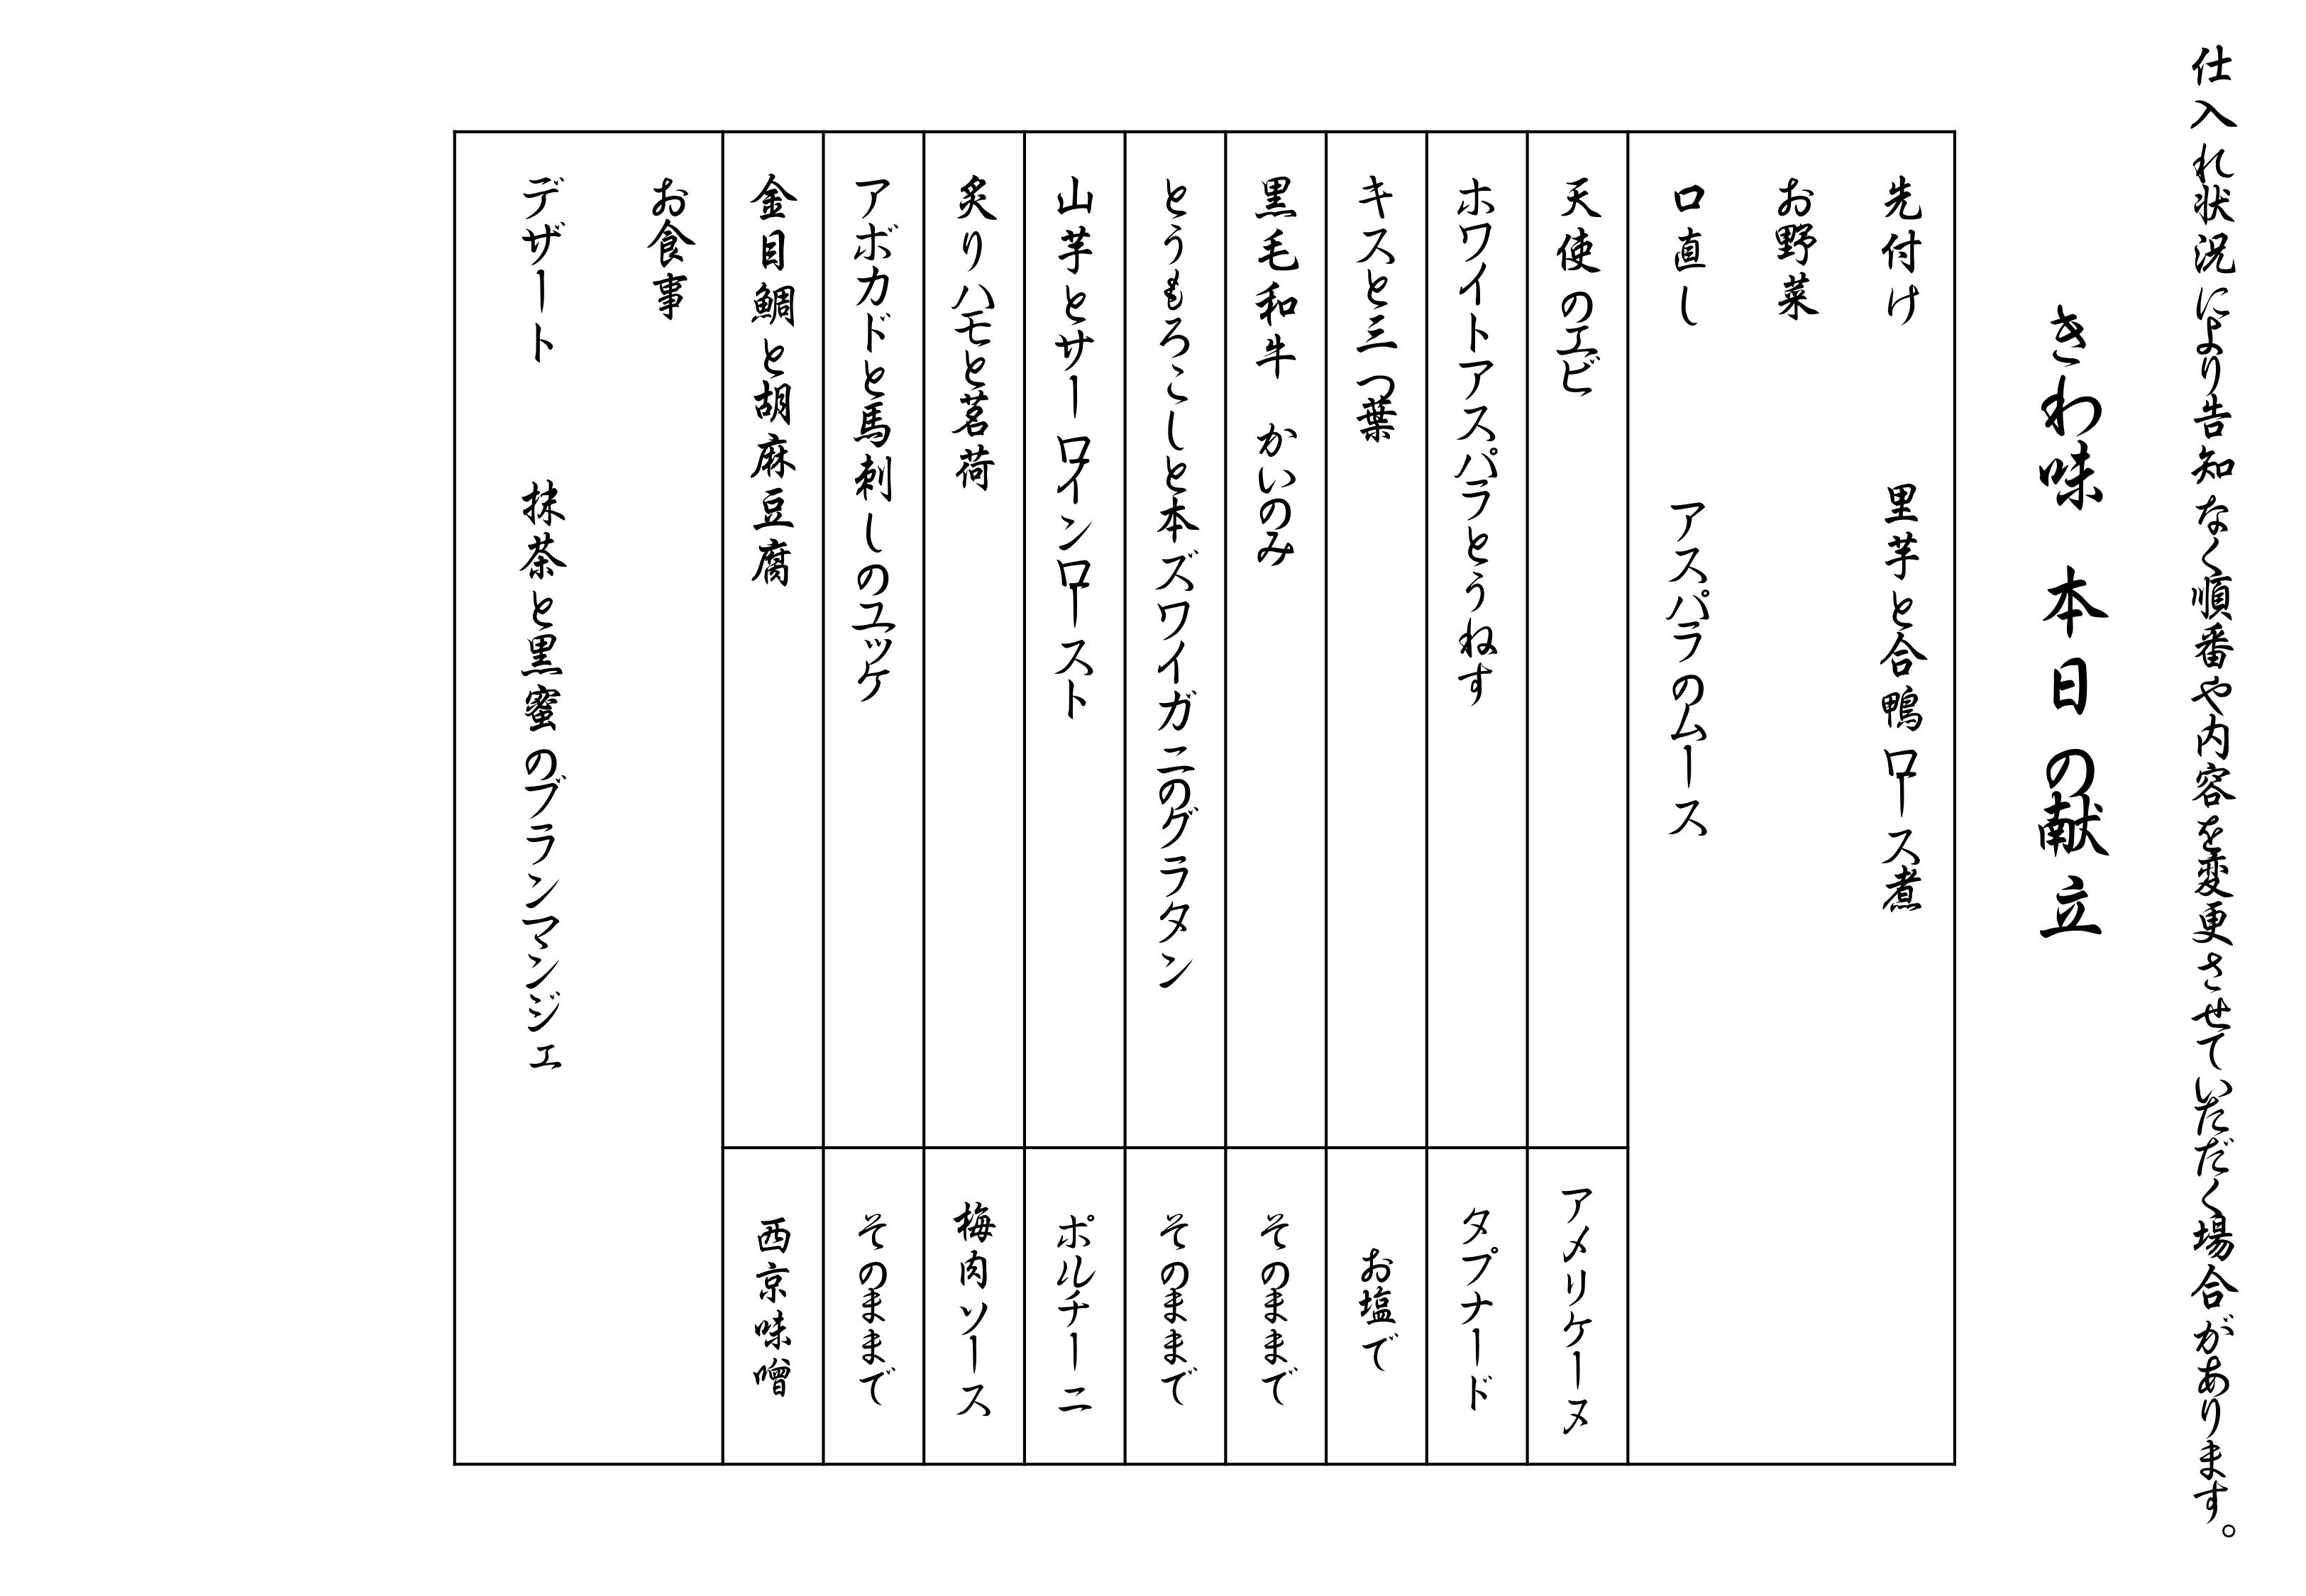 仕入れ状況により告知なく順番や内容を変更させていただく場合があります。
きわ味　本日の献立
先付け　里芋と合鴨ロース煮
お野菜
口直し　アスパラのムース
天使のエビ　アメリケーヌ
ホワイトアスパラとうねす　タプナード
キスと三つ葉　お塩で
黒毛和牛　かいのみ　そのままで
とうもろこしと本ズワイガニのグラタン　そのままで
山芋とサーロインロースト　ポルチーニ
炙りハモと茗荷　梅肉ソース
アボカドと馬刺しのユッケ　そのままで
金目鯛と胡麻豆腐　西京味噌
お食事
デザート　抹茶と黒蜜のブランマンジェ